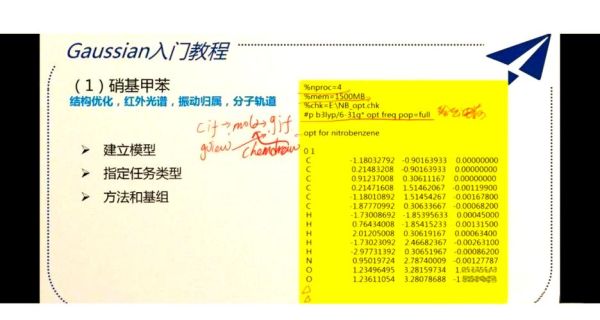 Gaussian入门教程
（1）硝基甲苯
结构优化，红外光谱，振动归属，分子轨道
cif→mol2→gjf
gview
chemdraw
➢ 建立模型
➢ 指定任务类型
➢ 方法和基组
%nproc=4
%mem=1500MB
%chk=E:\NB_opt.chk
#p b3lyp/6-31g* opt freq pop=full
opt for nitrobenzene
0 1
C -1.18032792 -0.90163933 0.00000000
C 0.21483208 -0.90163933 0.00000000
C 0.91237008 0.30611167 0.00000000
C 0.21471608 1.51462067 -0.00119900
C -1.18010892 1.51454267 -0.00167800
C -1.87770992 0.30633667 -0.00068200
H -1.73008692 -1.85395633 0.00045000
H 0.76434008 -1.85415233 0.00131500
H 2.01205008 0.30619167 0.00063400
H -1.73023092 2.46682367 -0.00263100
H -2.97731392 0.30651967 -0.00086200
N 0.95019724 2.78740009 -0.00127787
O 1.23496495 3.28159734
O 1.23611054 3.28078688